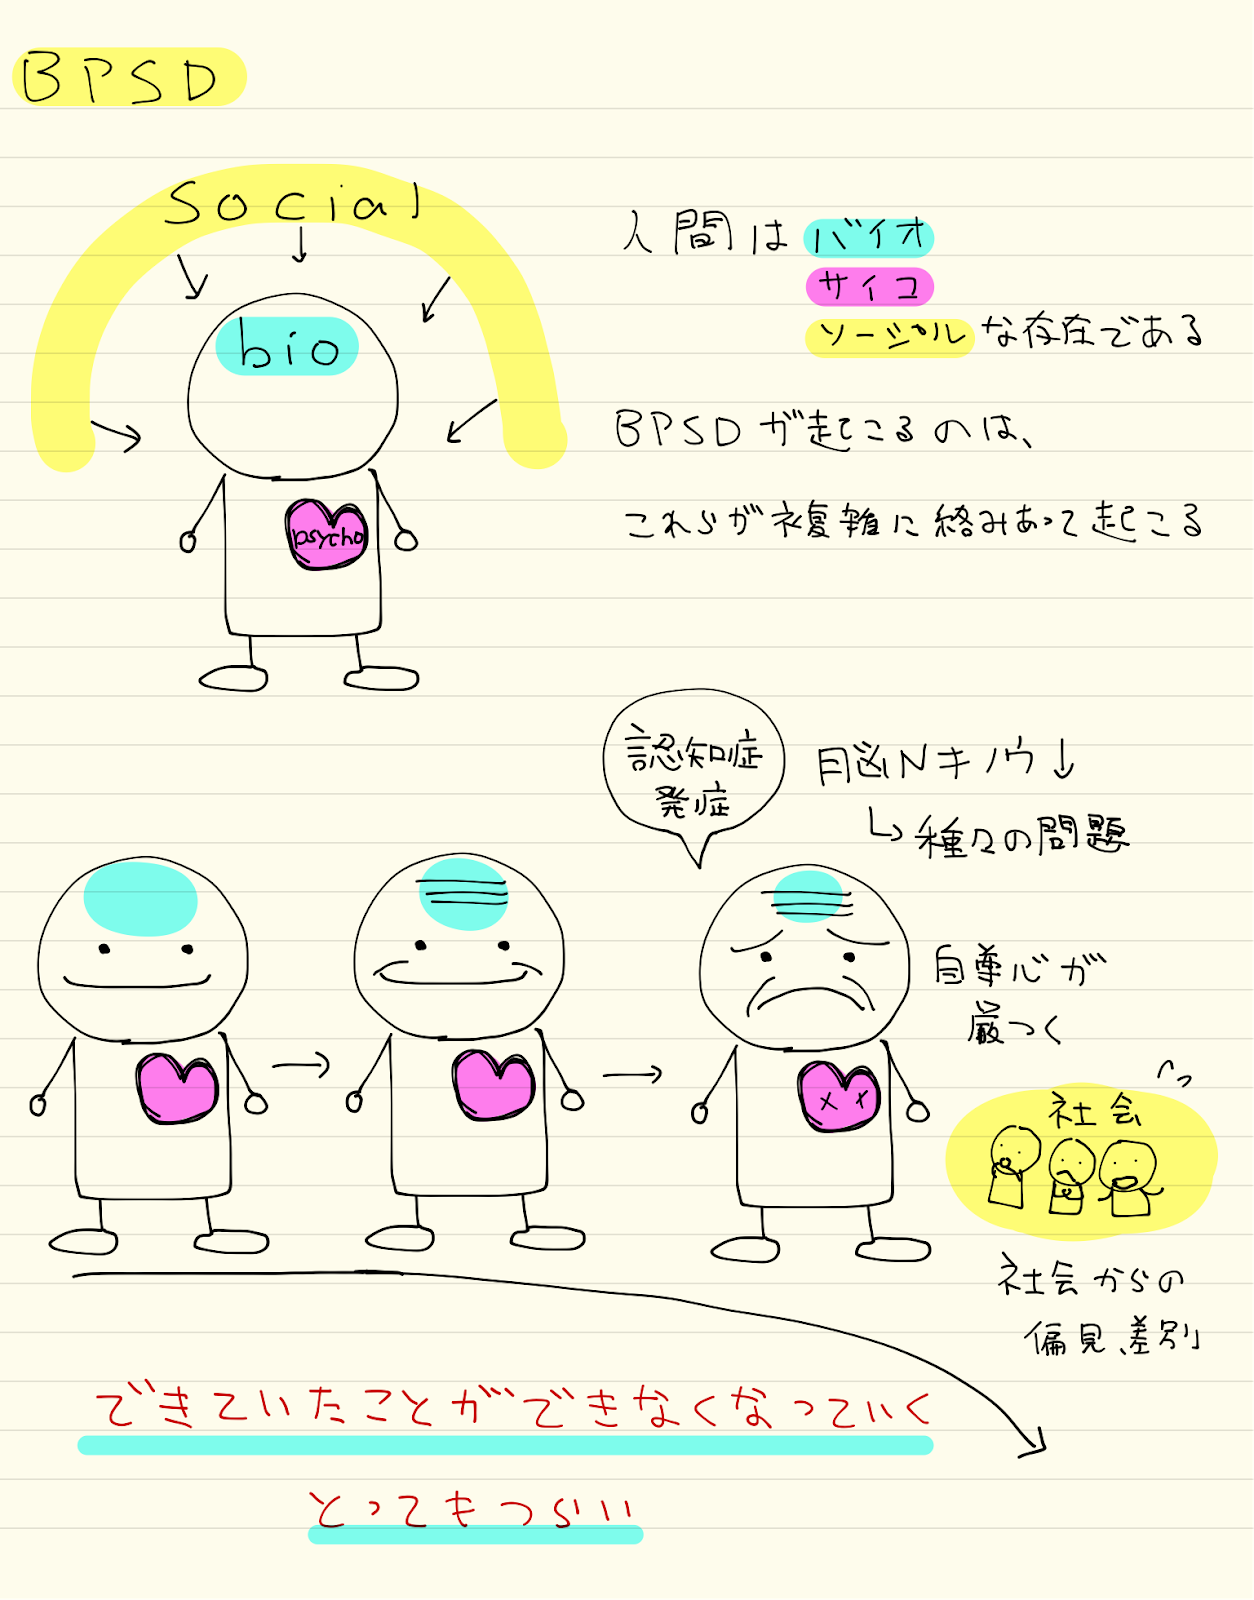 BPSD
social
bio
psycho
人間は バイオ
サイコ
ソーシャル な存在である
BPSDが起こるのは、
これらが複雑に絡みあって起こる
認知症
発症
脳Nキノウ↓
↳種々の問題
自尊心が
傷つく
社会
社会からの
偏見、差別
できていたことができなくなっていく
とってもつらい